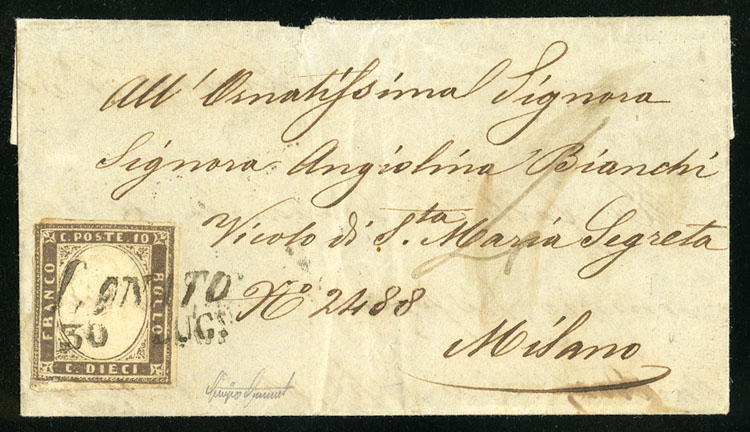 All' Ornatissima Signora
Signora Angiolina Bianchi
Vicolo di S.ta Maria Segreta
N.º 2488
Milano
C. POSTE. 10
FRANCO
BOLLO
C. DIECI
LONATO
30 LUG.